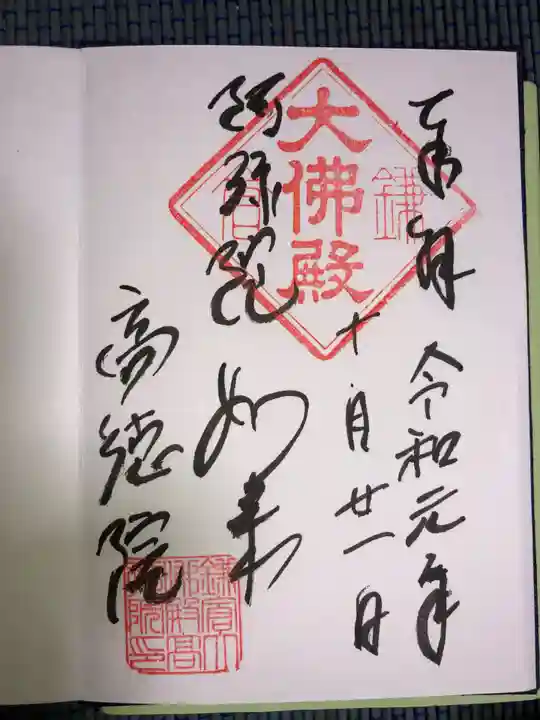 奉拝
令和元年
十月廿一日
鎌倉
大佛殿
阿弥陀如来
高徳院
鎌倉大佛殿高徳院印